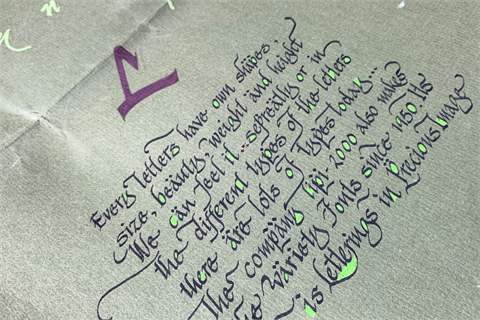 Every letters have own shapes,
size, beauty, weight and height
We can feel it... sepreatly or in
the different types of the letters
there are lots of types today...
The company lipi-2000 also makes
variety Fonts since 1950 its
is letterings in Precious Image